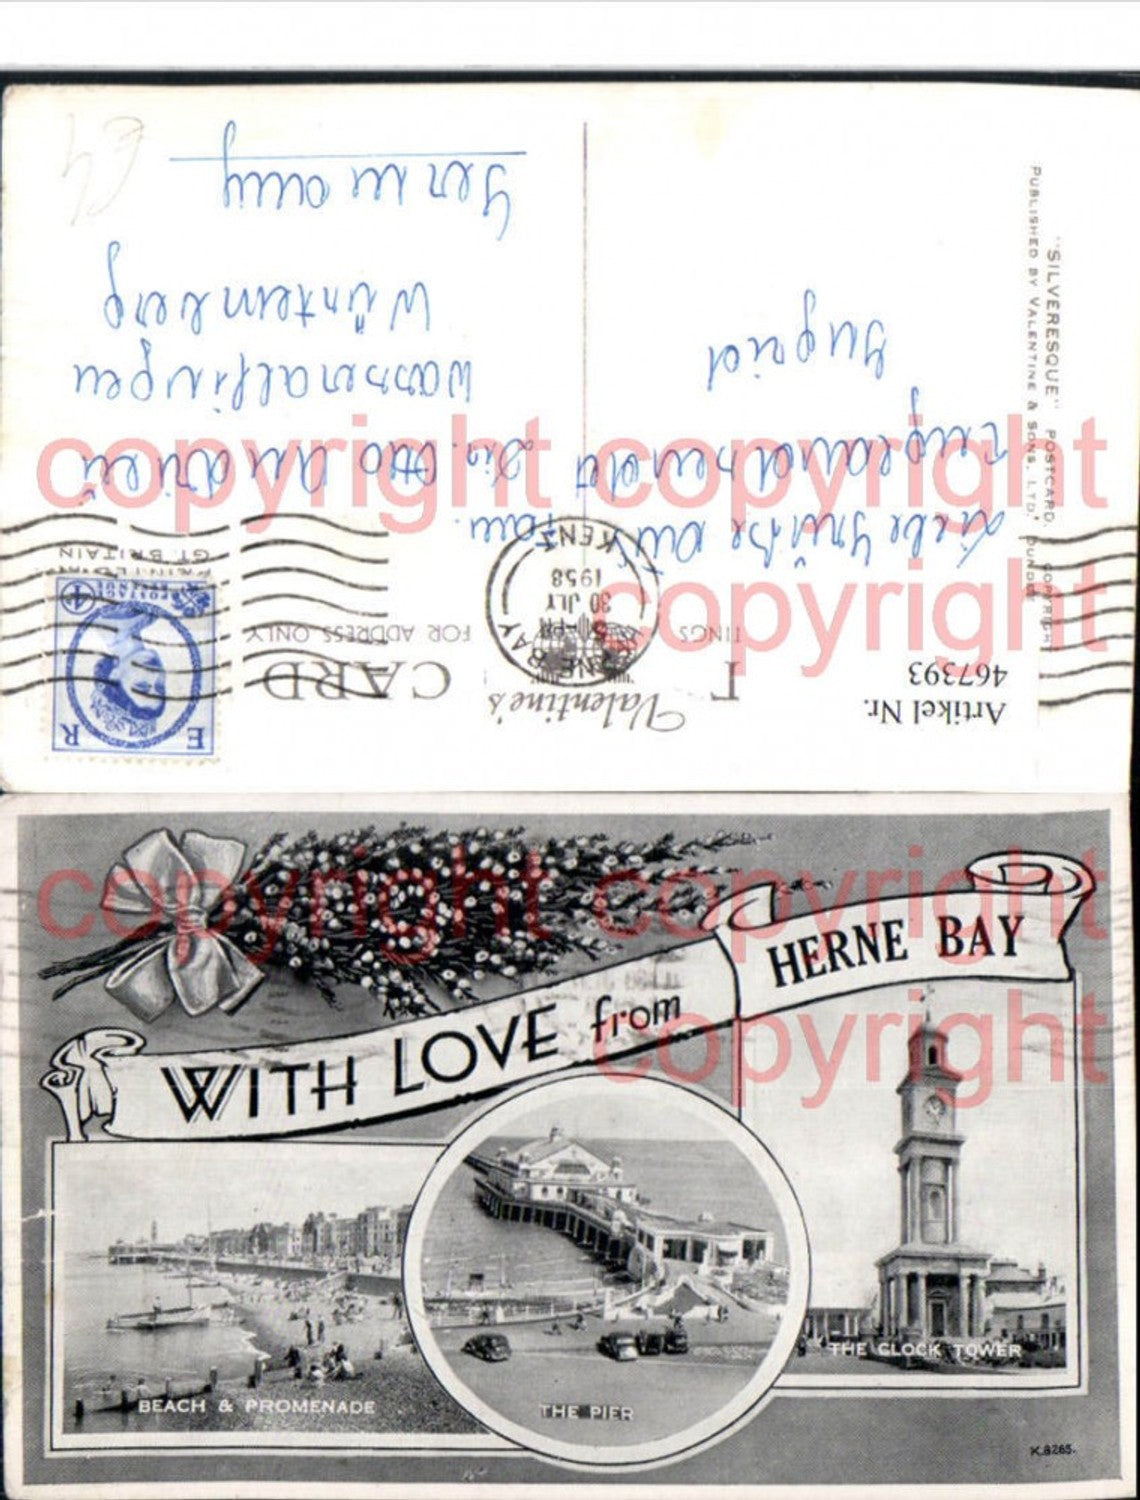 "SILVERESQUE" POSTCARD. COPYRIGHT
PUBLISHED BY VALENTINE & SONS, LTD., DUNDEE
Artikel Nr.
467393
Valentine's
CARD
TINGS
FOR ADDRESS ONLY
E R
POSTAGE REVENUE
4D
PRINTED IN
GT. BRITAIN
NE BAY
5-PM
30 JLY
1958
KENT
Liebe Grüße aus
Ingrid
Fam.
Otto
Wasseralfingen
Württemberg
Germany
£4
copyright copyright
copyright
WITH LOVE from
HERNE BAY
BEACH & PROMENADE
THE PIER
THE CLOCK TOWER
K.8265.
copyright copyright
copyright